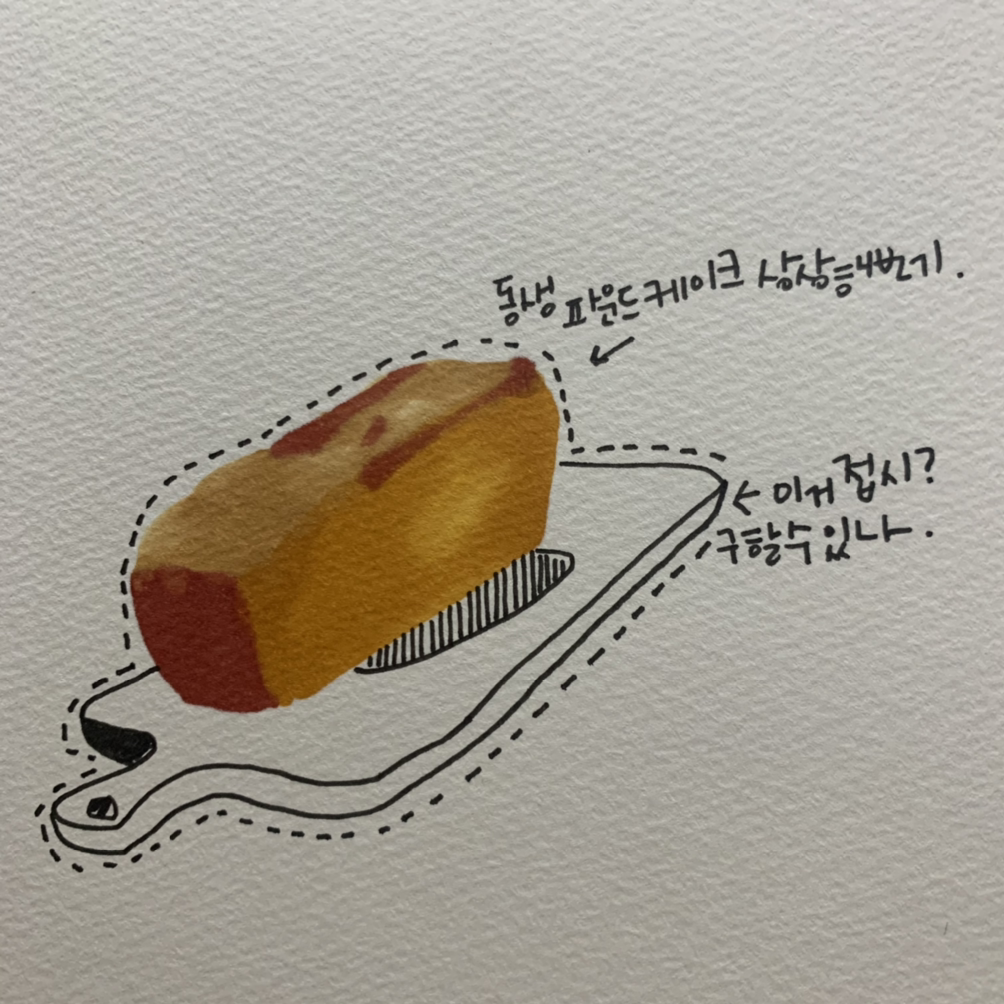 동생 파운드케이크 상상해보기.
← 이거 접시?
구할수있나.